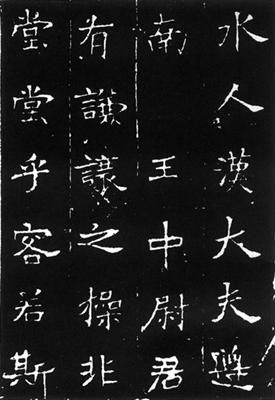 水人漢大夫遷
南王中尉君
有謙讓之操非
堂堂乎客若斯